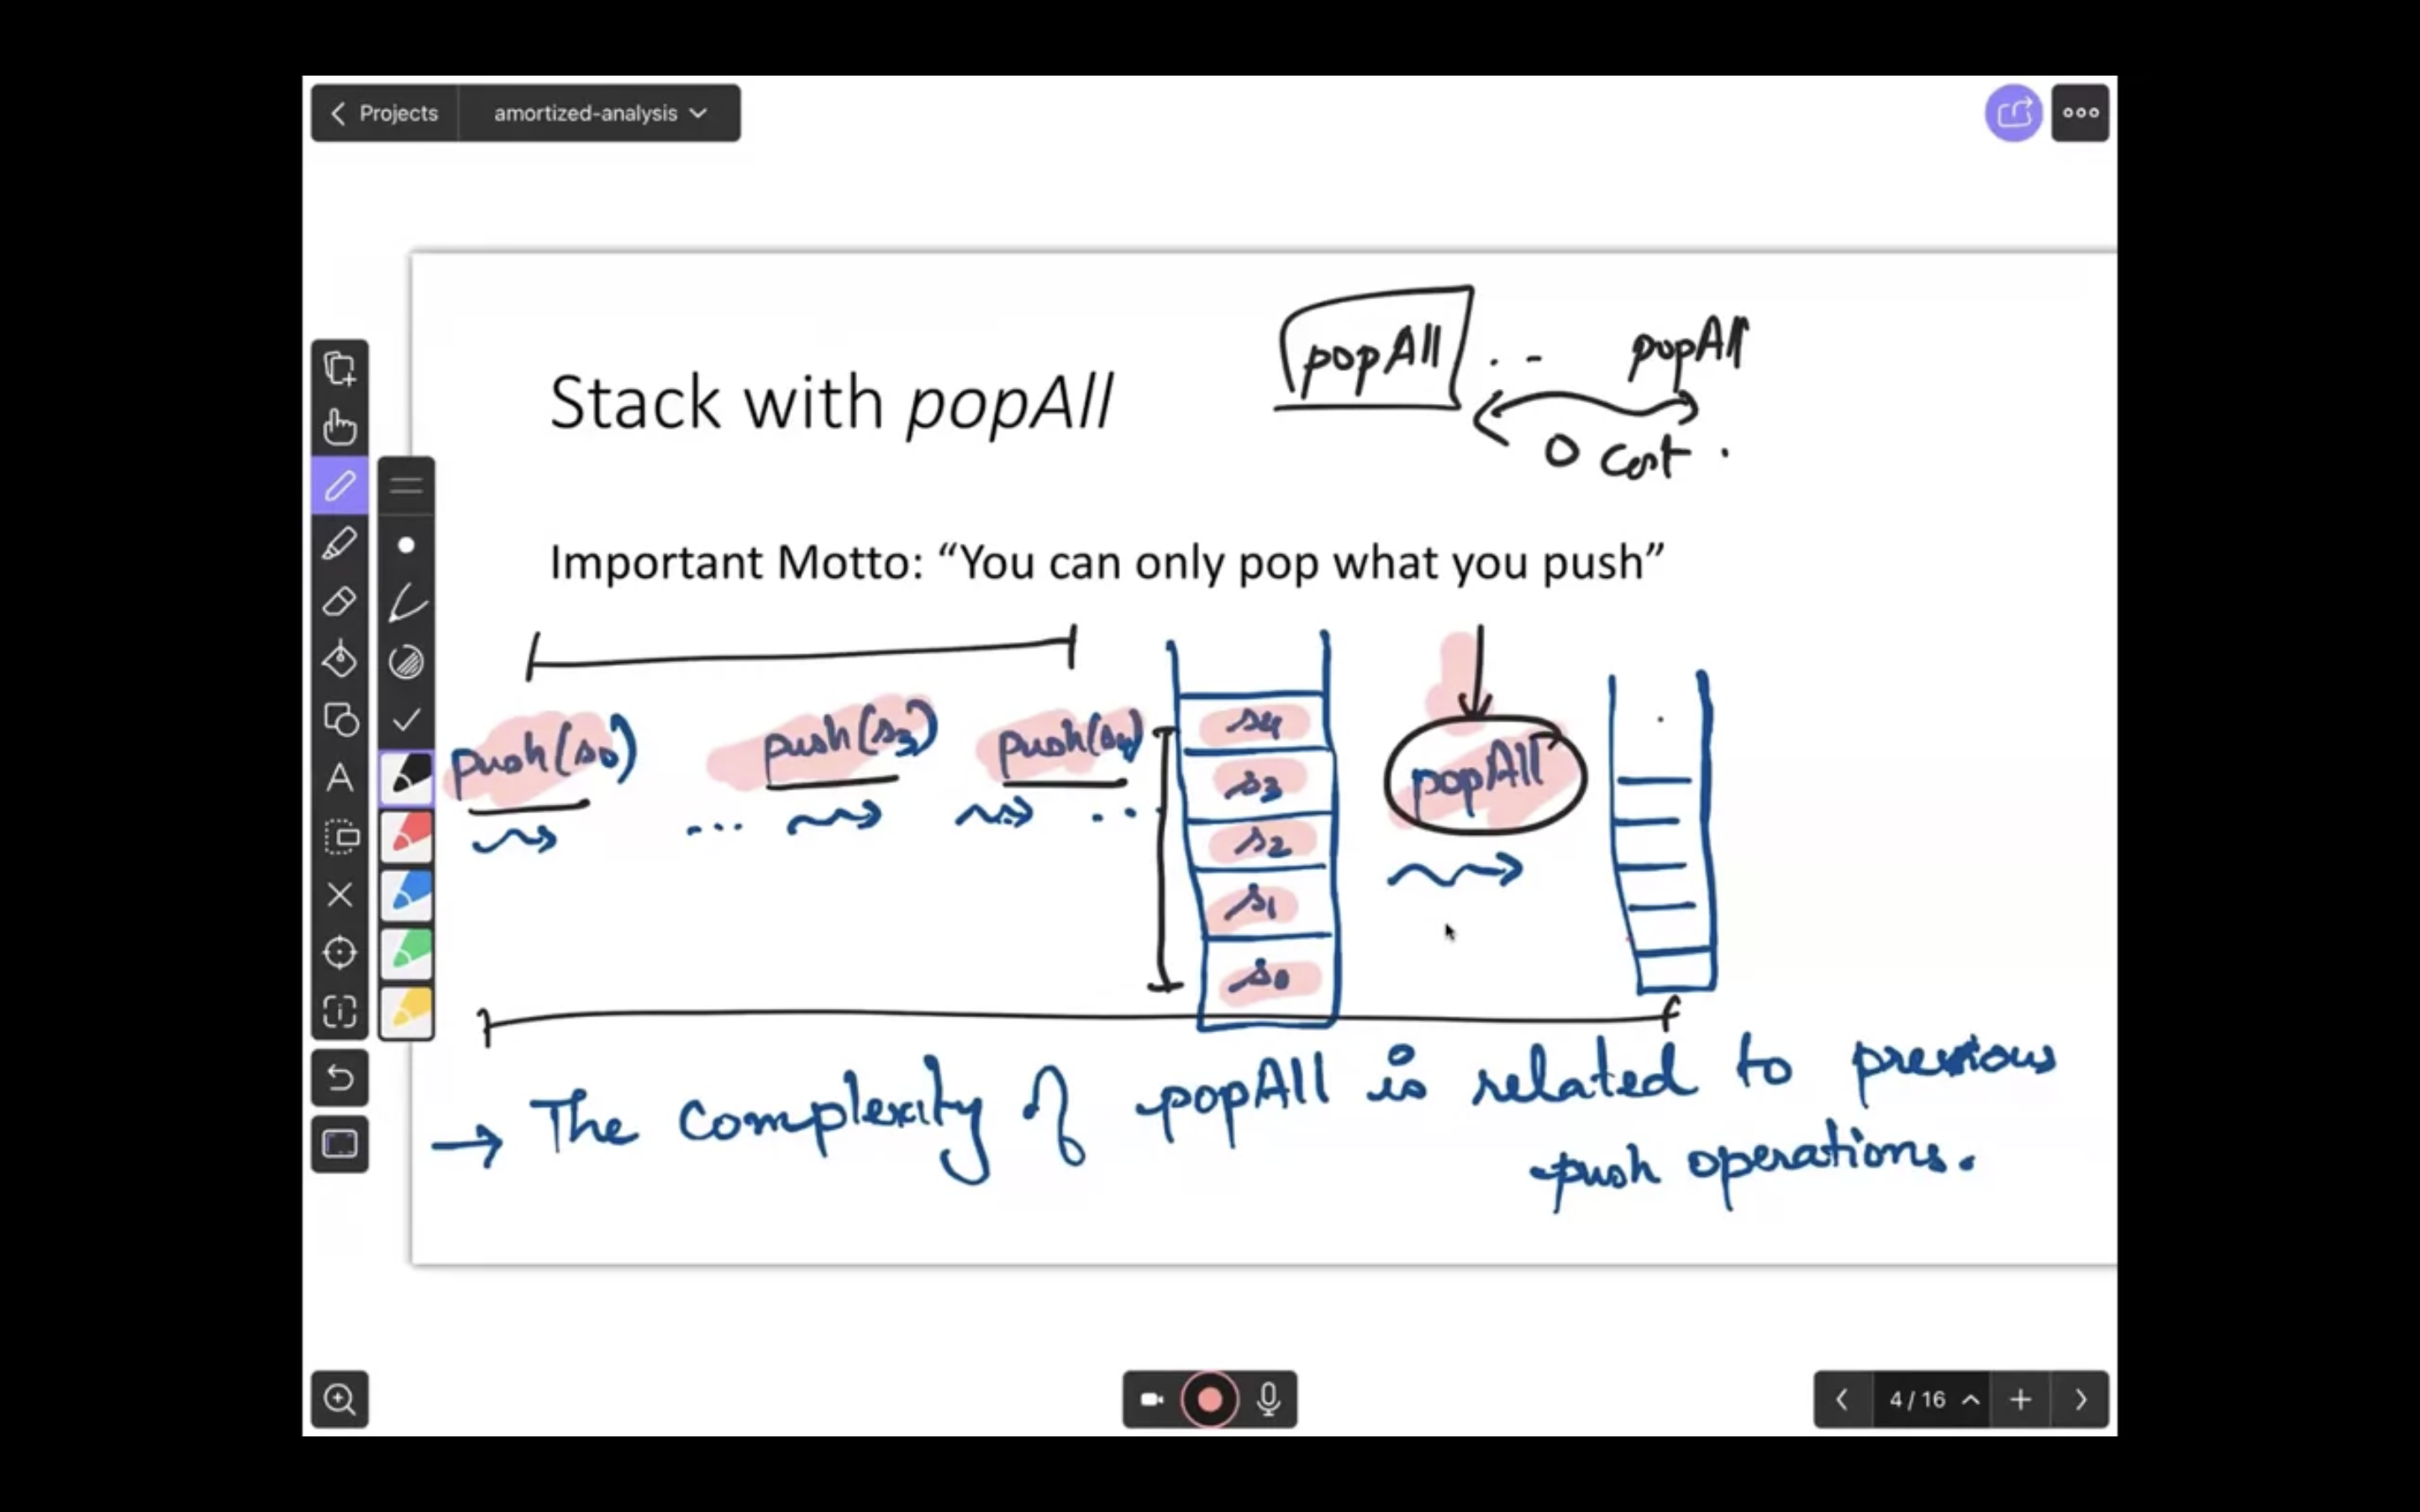 Projects
amortized-analysis
popAll .. popAll
Stack with popAll
0 Cost .
Important Motto: “You can only pop what you push”
push(s0) ... push(s3) push(s4) ..
s4
s3
s2
s1
s0
popAll
→ The Complexity of popAll is related to previous
push operations.
A
4 / 16